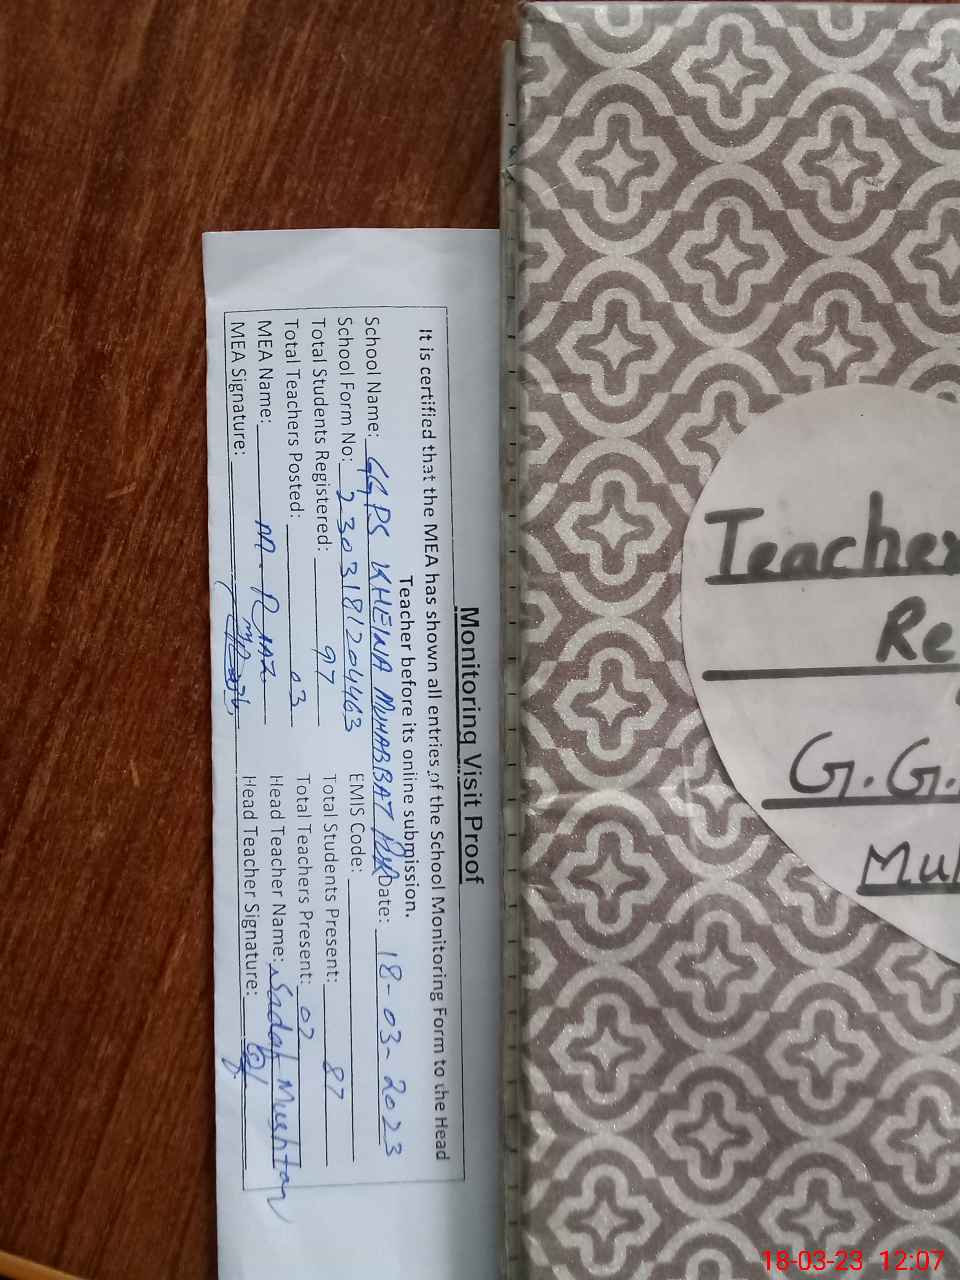 Monitoring Visit Proof
It is certified that the MEA has shown all entries of the School Monitoring Form to the Head
Teacher before its online submission.
School Name: GGPS KHEWA MUHABBAT Date: 18-03-2023
School Form No: 2303181204463 EMIS Code:
Total Students Registered: 97 Total Students Present: 87
Total Teachers Posted: 03 Total Teachers Present: 02
MEA Name: M. Riaz Head Teacher Name: Sadaf Mushtaq
MEA Signature: Head Teacher Signature:
Teacher
Re
G.G.
Muh
18-03-23 12:07